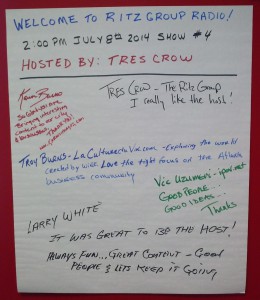 WELCOME TO RITZ GROUP RADIO!
2:00 PM JULY 8th 2014 SHOW #4
HOSTED BY: TRES CROW
TRES CROW - The Ritz Group
I really like the hush!
Bringing interesting
Troy Burns - LaCulturectaVie.com - Exploring the world
created by wine. Love the tight focus on the Atlanta
business community
GOOD PEOPLE...
GOOD IDEAS...
Thanks
LARRY WHITE
IT WAS GREAT TO BE THE HOST!
ALWAYS FUN... GREAT CONTENT - GOOD
PEOPLE & LETS KEEP IT GOING